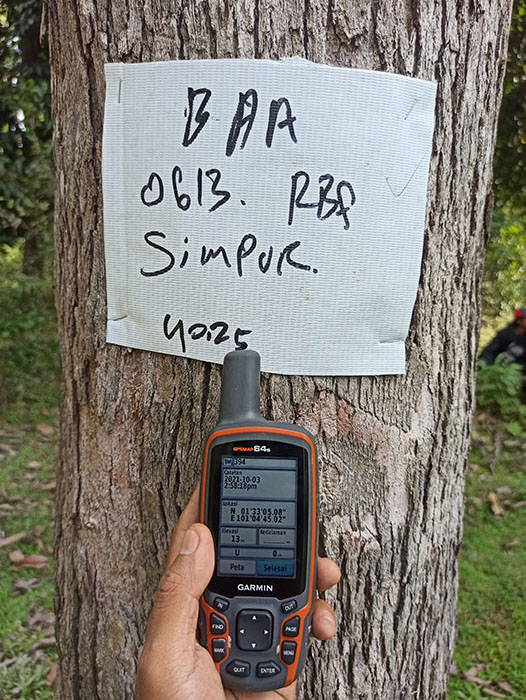 BAA
0613. RBf
SimPUR.
40.25
GPSMAP 64s
394
Catatan
2021-10-03
2:58:18pm
Lokasi
N 01°33'05.08"
E 101°04'45.02"
Elevasi
13
U 0
Peta Selesai
GARMIN
IN OUT
FIND PAGE
MARK MENU
QUIT ENTER